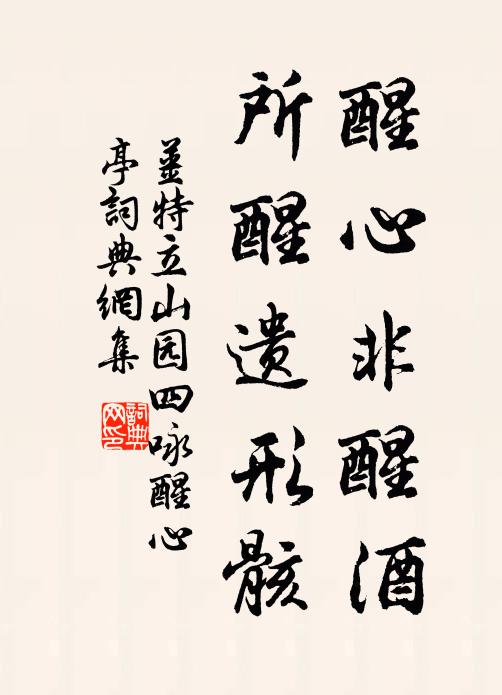 醒心非醒酒
所醒遗形骸
姜特立山园四咏醒心
亭詞典網集
詞典网印